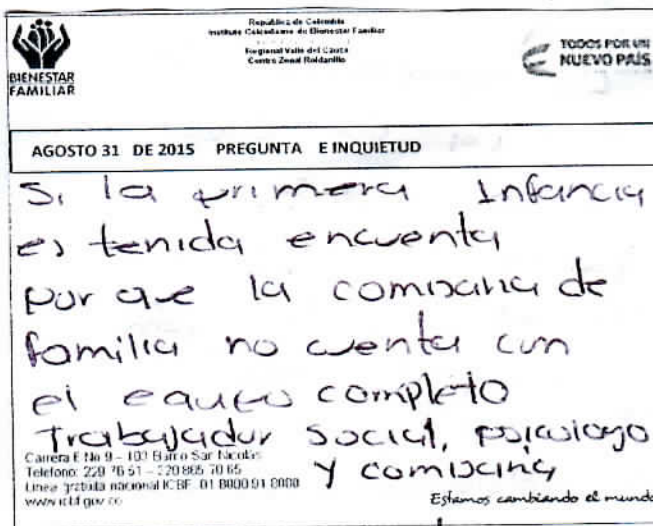 República de Colombia
Instituto Colombiano de Bienestar Familiar
Regional Valle del Cauca
Centro Zonal Roldanillo
BIENESTAR
FAMILIAR
TODOS POR UN
NUEVO PAÍS
AGOSTO 31 DE 2015 PREGUNTA E INQUIETUD
Si la primera Infancia
es tenida encuenta
por que la comisaria de
familia no cuenta con
el equipo completo
Trabajador social, psicologo
y comisaria
Carrera 6 No 9 – 103 Barrio San Nicolás
Teléfono: 229 76 51 –
Línea gratuita nacional ICBF 01 8000 91 8080
www.icbf.gov.co
Estamos cambiando el mundo